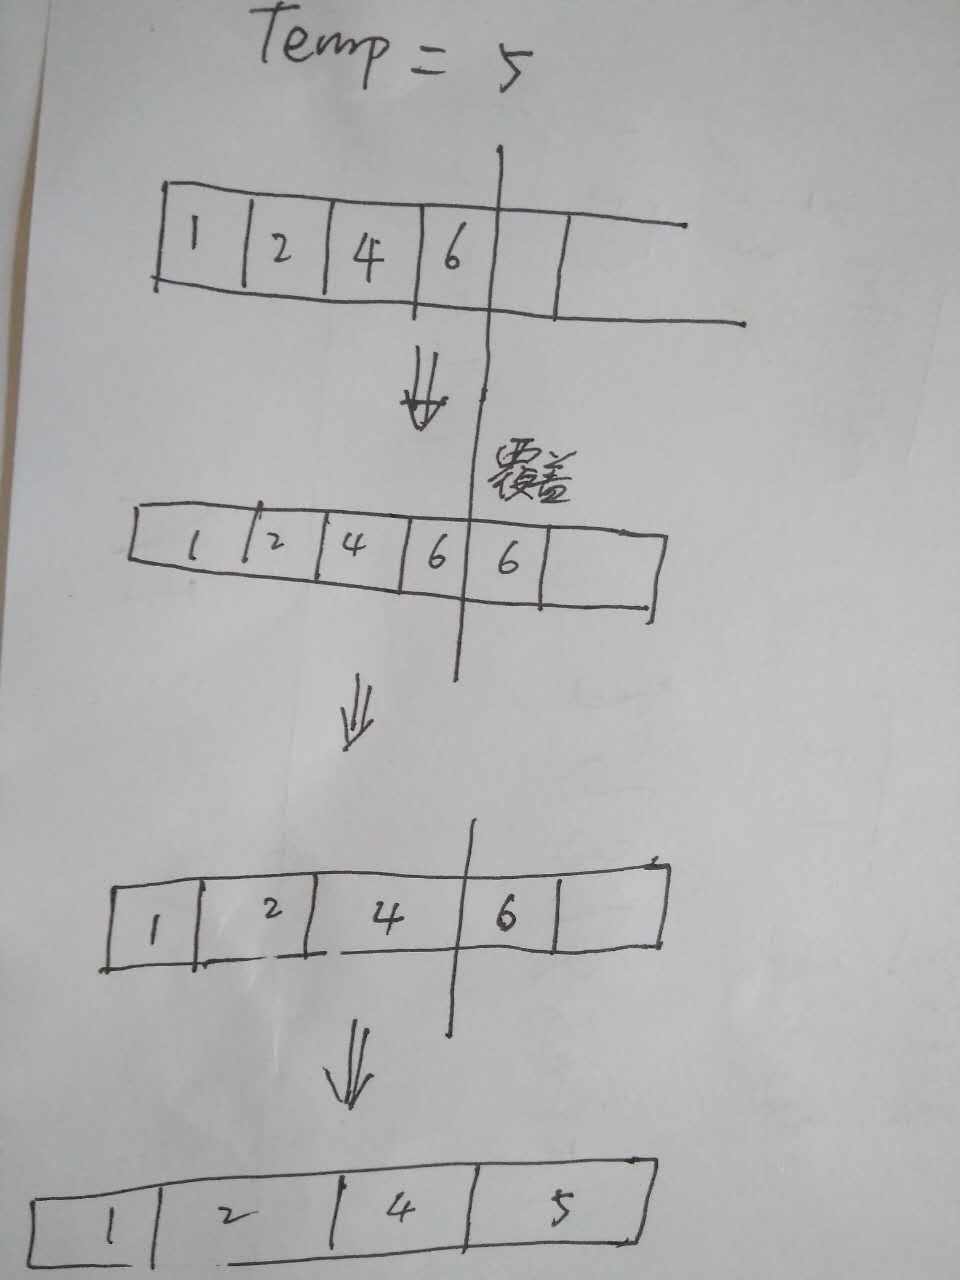 Temp = 5
1 2 4 6
覆盖
1 2 4 6 6
1 2 4 6
1 2 4 5